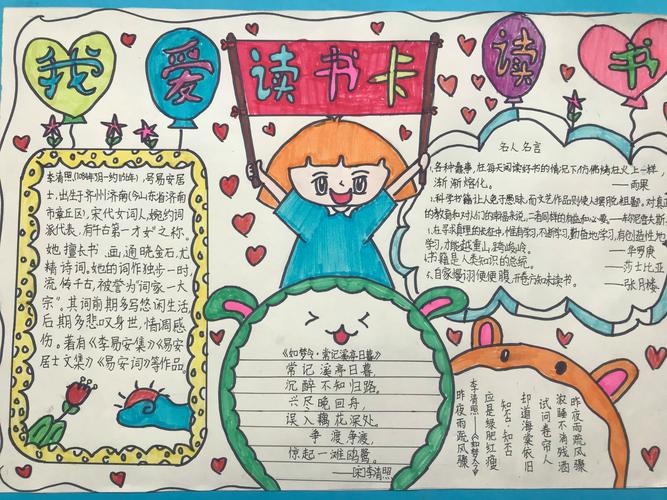 我爱
读书卡
读书
李清照(1084年3月—约1155年),号易安居
士,出生于齐州济南(今山东省济南
市章丘区),宋代女词人,婉约词
派代表,有千古第一才女之称。
她擅长书、画,通晓金石,尤
精诗词。她的词作独步一时,
流传千古,被誉为“词家一大
宗”。其词前期多写悠闲生活,
后期多悲叹身世,情调感
伤。著有《李易安集》《易安
居士文集》《易安词》等作品。
《如梦令·常记溪亭日暮》
常记溪亭日暮,
沉醉不知归路。
兴尽晚回舟,
误入藕花深处。
争渡争渡,
惊起一滩鸥鹭。
—[宋]李清照
名人名言
各种蠢事,在每天阅读好书的情况下,仿佛烤在火上一样,
渐渐熔化。 ——雨果
科学书籍让人免于愚昧,而文艺作品则使人摆脱粗鄙,对真正
的教育和对人们的幸福来说,二者同样的有益和必要。
在寻求真理的长征中,惟有学习,不断学习,勤奋地学习,有创造性地
学习,才能越重山,跨峻岭。 ——华罗庚
书籍是人类知识的总统。 ——莎士比亚
自家漫诩便便腹,开卷方知未读书。 ——张月楼
昨夜雨疏风骤
浓睡不消残酒
试问卷帘人
却道海棠依旧
知否,知否
应是绿肥红瘦
李清照——《如梦令·
昨夜雨疏风骤